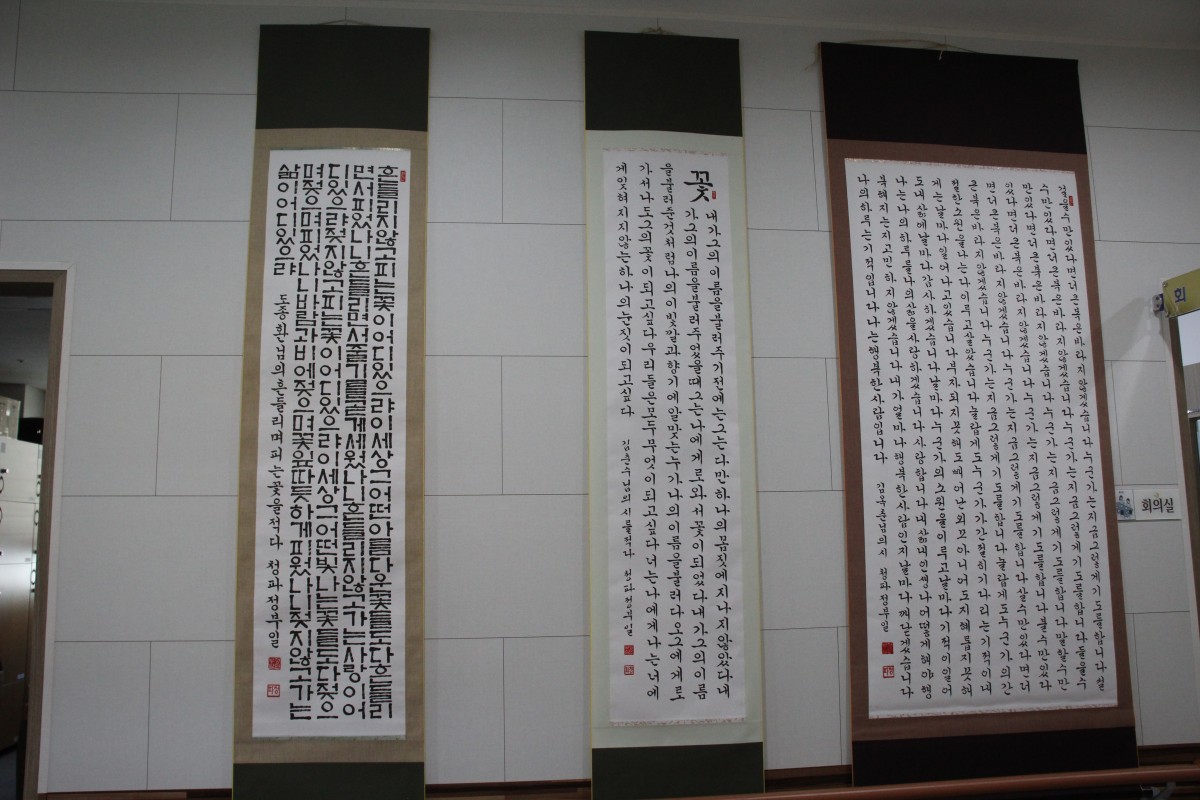 흔들리지않고피는꽃이어디있으랴이세상그어떤아름다운꽃들도다흔들리
면서피었나니흔들리면서줄기를곧게세웠나니흔들리지않고가는사랑이어
디있으랴젖지않고피는꽃이어디있으랴이세상그어떤빛나는꽃들도다젖으
며젖으며피었나니바람과비에젖으며꽃잎따뜻하게피웠나니젖지않고가는
삶이어디있으랴 도종환님의흔들리며피는꽃을적다 청파정부일
꽃
내가그의이름을불러주기전에는그는다만하나의몸짓에지나지않았다내
가그의이름을불러주었을때그는나에게로와서꽃이되었다내가그의이름
을불러준것처럼나의이빛깔과향기에알맞는누가나의이름을불러다오그에게로
가서나도그의꽃이되고싶다우리들은모두무엇이되고싶다너는나에게나는너에
게잊혀지지않는하나의눈짓이되고싶다 김춘수님의시를적다 청파정부일
걸을수만있다면더큰복은바라지않겠습니다누군가는지금그렇게기도를합니다설
수만있다면더큰복은바라지않겠습니다누군가는지금그렇게기도를합니다들을수
만있다면더큰복은바라지않겠습니다누군가는지금그렇게기도를합니다말할수만
있다면더큰복은바라지않겠습니다누군가는지금그렇게기도를합니다볼수만있다
면더큰복은바라지않겠습니다누군가는지금그렇게기도를합니다살수만있다면더
큰복은바라지않겠습니다누군가는지금그렇게기도를합니다놀랍게도누군가의간
절한소원을나는다이루고살았습니다놀랍게도누군가가간절히기다리는기적이내
게는날마다일어나고있습니다부자되지못해도빼어난외모아니어도지혜롭지못해
도내삶에날마다감사하겠습니다날마다누군가의소원을이루고날마다기적이일어
나는나의하루를나의삶을사랑하겠습니다사랑합니다내삶내인생나어떻게해야행
복해지는지고민하지않겠습니다내가얼마나행복한사람인지날마다깨닫겠습니다
나의하루는기적입니다나는행복한사람입니다 김옥춘님의시 청파정부일
회
회의실